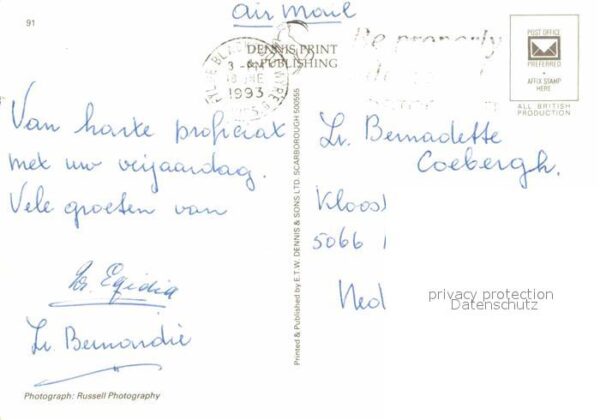 air mail
91
3 - PM
1993
DENNIS PRINT
& PUBLISHING
Be properly
POST OFFICE
PREFERRED
AFFIX STAMP
HERE
ALL BRITISH
PRODUCTION
Van harte proficiat
met uw verjaardag.
Vele groeten van
Zr. Egidia
Zr. Bernardie
Zr. Bernadette
Coebergh.
Kloos
5066
Ned
privacy protection
Datenschutz
Printed & Published by E.T.W. DENNIS & SONS LTD. SCARBOROUGH 500565
Photograph: Russell Photography